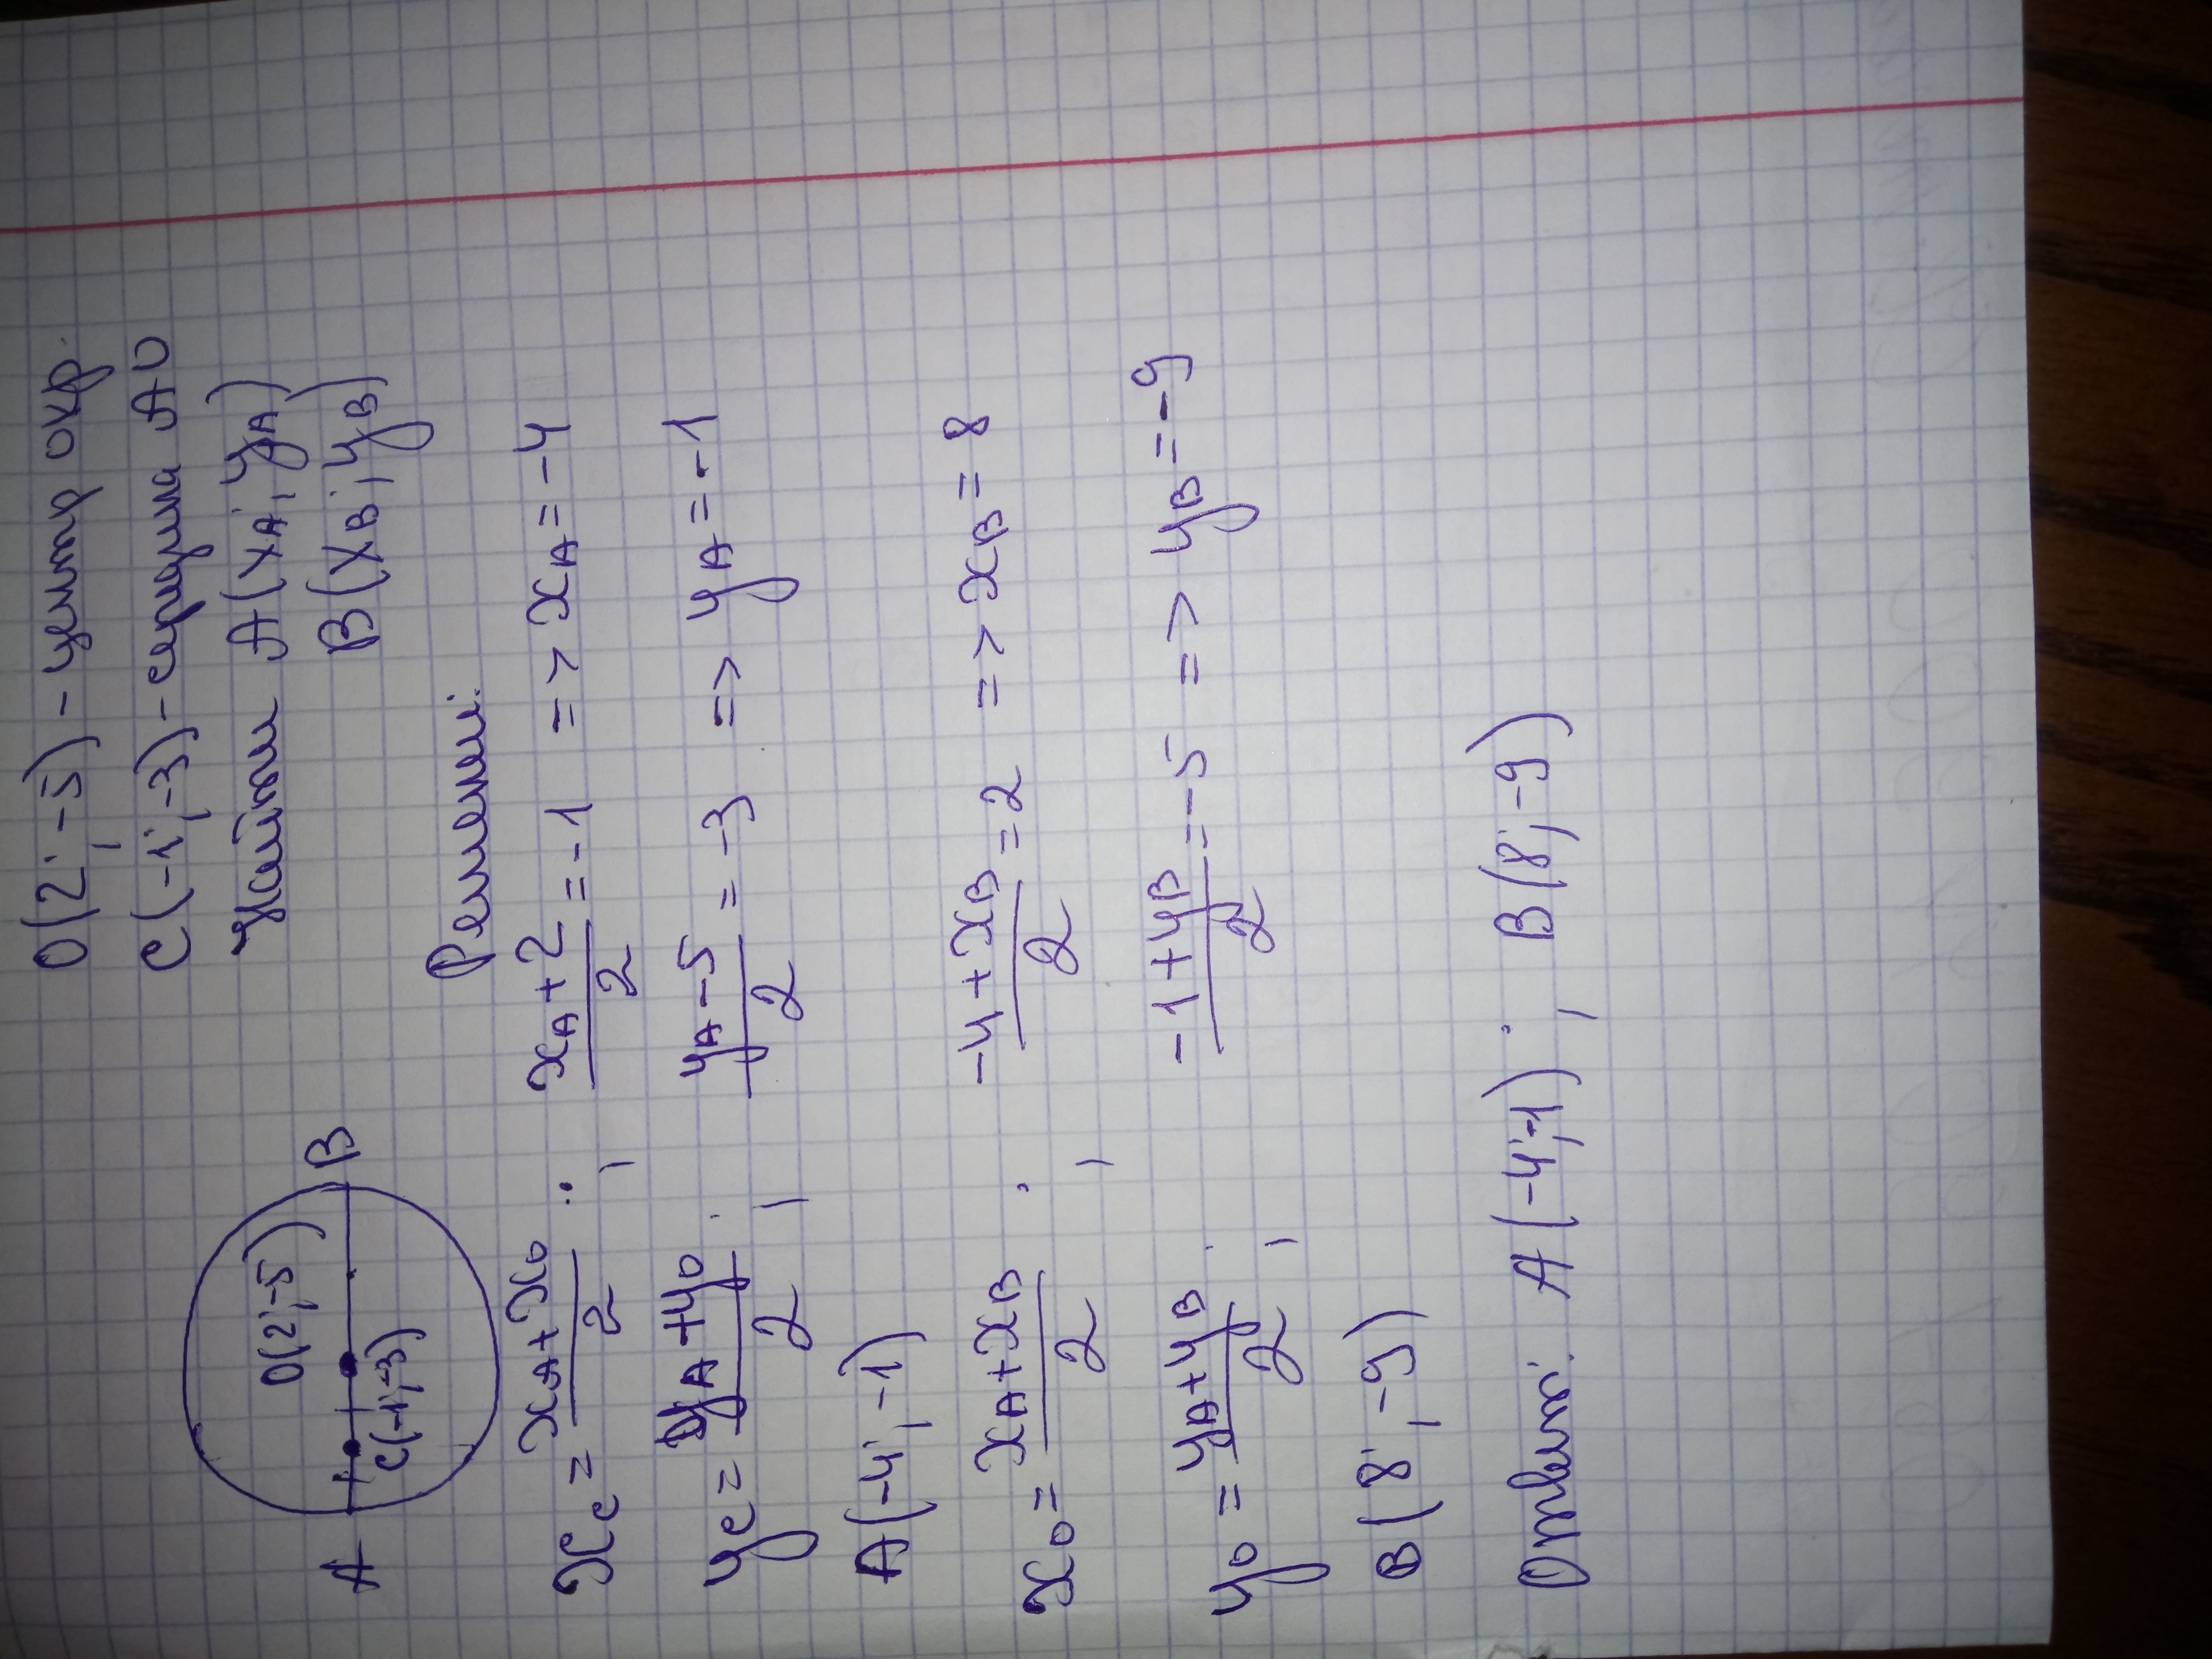 O(2;-5) - центр окр.
C(-1;-3) - середина AO
Найти A(xA; yA)
B(xB; yB)
A B
O(2;-5)
C(-1;-3)
Решение:
xc = (xA + xo)/2 ; (xA + 2)/2 = -1 => xA = -4
yc = (yA + yo)/2 ; (yA - 5)/2 = -3 => yA = -1
A(-4; -1)
xo = (xA + xB)/2 ; (-4 + xB)/2 = 2 => xB = 8
yo = (yA + yB)/2 ; (-1 + yB)/2 = -5 => yB = -9
B(8; -9)
Ответ: A(-4;-1) ; B(8;-9)